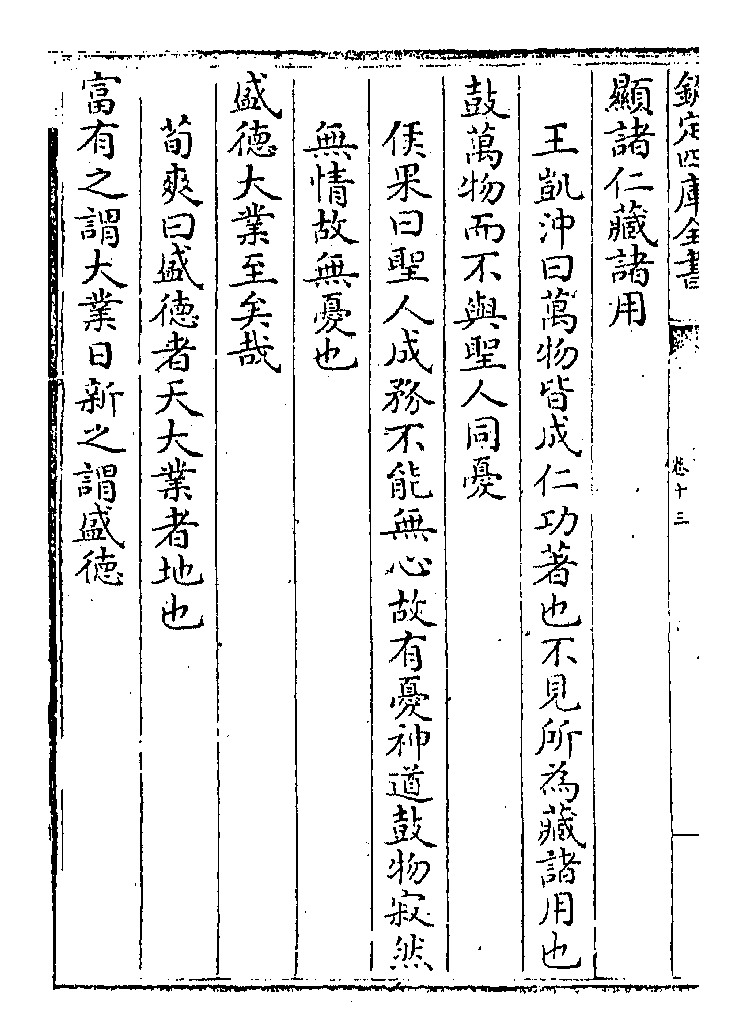 欽定四庫全書
卷十三
顯諸仁藏諸用
王凱沖曰萬物皆成仁功著也不見所為藏諸用也
鼓萬物而不與聖人同憂
侯果曰聖人成務不能無心故有憂神道鼓物寂然
無情故無憂也
盛德大業至矣哉
荀爽曰盛德者天大業者地也
富有之謂大業日新之謂盛德